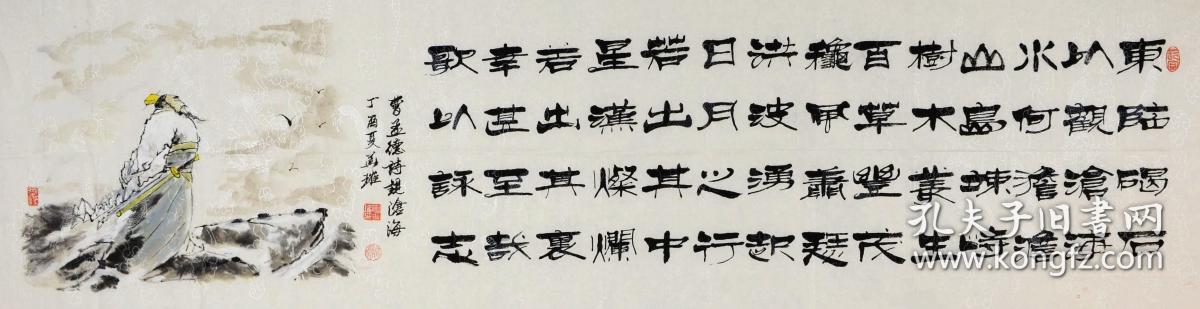 東臨碣石
以觀滄海
水何澹澹
山島竦峙
樹木叢生
百草豐茂
穐風蕭瑟
洪波湧起
日月之行
若出其中
星漢燦爛
若出其裏
幸甚至哉
歌以詠志
曹孟德詩觀滄海
丁酉夏
孔夫子旧書网
www.kongfz.com